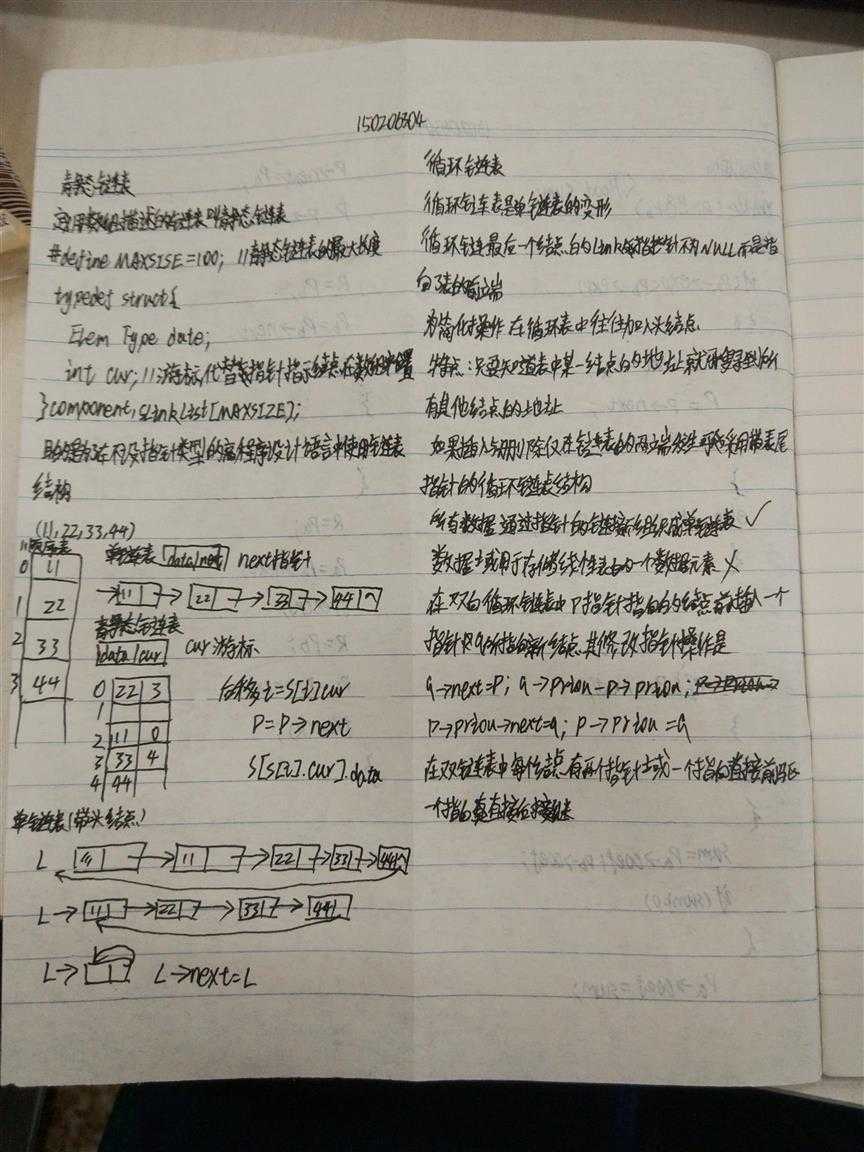 150206304
静态链表
定用数组描述的链表叫静态链表
#define MAXSISE=100; //静态链表的最大长度
typedef struct{
Elem Type date;
int cur; //游标,代替指针指示结点在数组中位置
}component,SLinkList[MAXSIZE];
目的是在不设指针类型的高程序设计语言中使用链表
结构
(11,22,33,44)
顺序表
0 11
1 22
2 33
3 44
单链表 data|next next指针
→ 11 → 22 → 33 → 44 ^
静态链表
data|cur cur游标
0 22 3
1
2 11 0
3 33 4
4 44
后移 i=S[i]cur
P=P→next
S[S[i].cur].data
单链表(带头结点)
L → 11 → 22 → 33 → 44 ^
L → 11 → 22 → 33 → 44
L→ L→next=L
循环链表
循环链表是单链表的变形
循环链最后一个结点的Link域指针不为NULL而是指
向了表的前端
为简化操作 在循环表中往往加入头结点
特点:只要知道表中某一结点的地址就可搜寻到所
有其他结点的地址
如果插入与删除仅在链表的两端发生可采用带表尾
指针的循环链表结构
所有数据通过指针的链接而组织成单链表 ✓
数据域用于存储线性表的一个数据元素 ×
在双向循环链表中P指针指向的结点前插入一个
指针q所指向新结点其修改指针操作是
q→next=P; q→priou=p→priou;
p→priou→next=q; p→priou=q
在双链表中每个结点有两个指针域一个指向直接前驱
一个指向直接后继